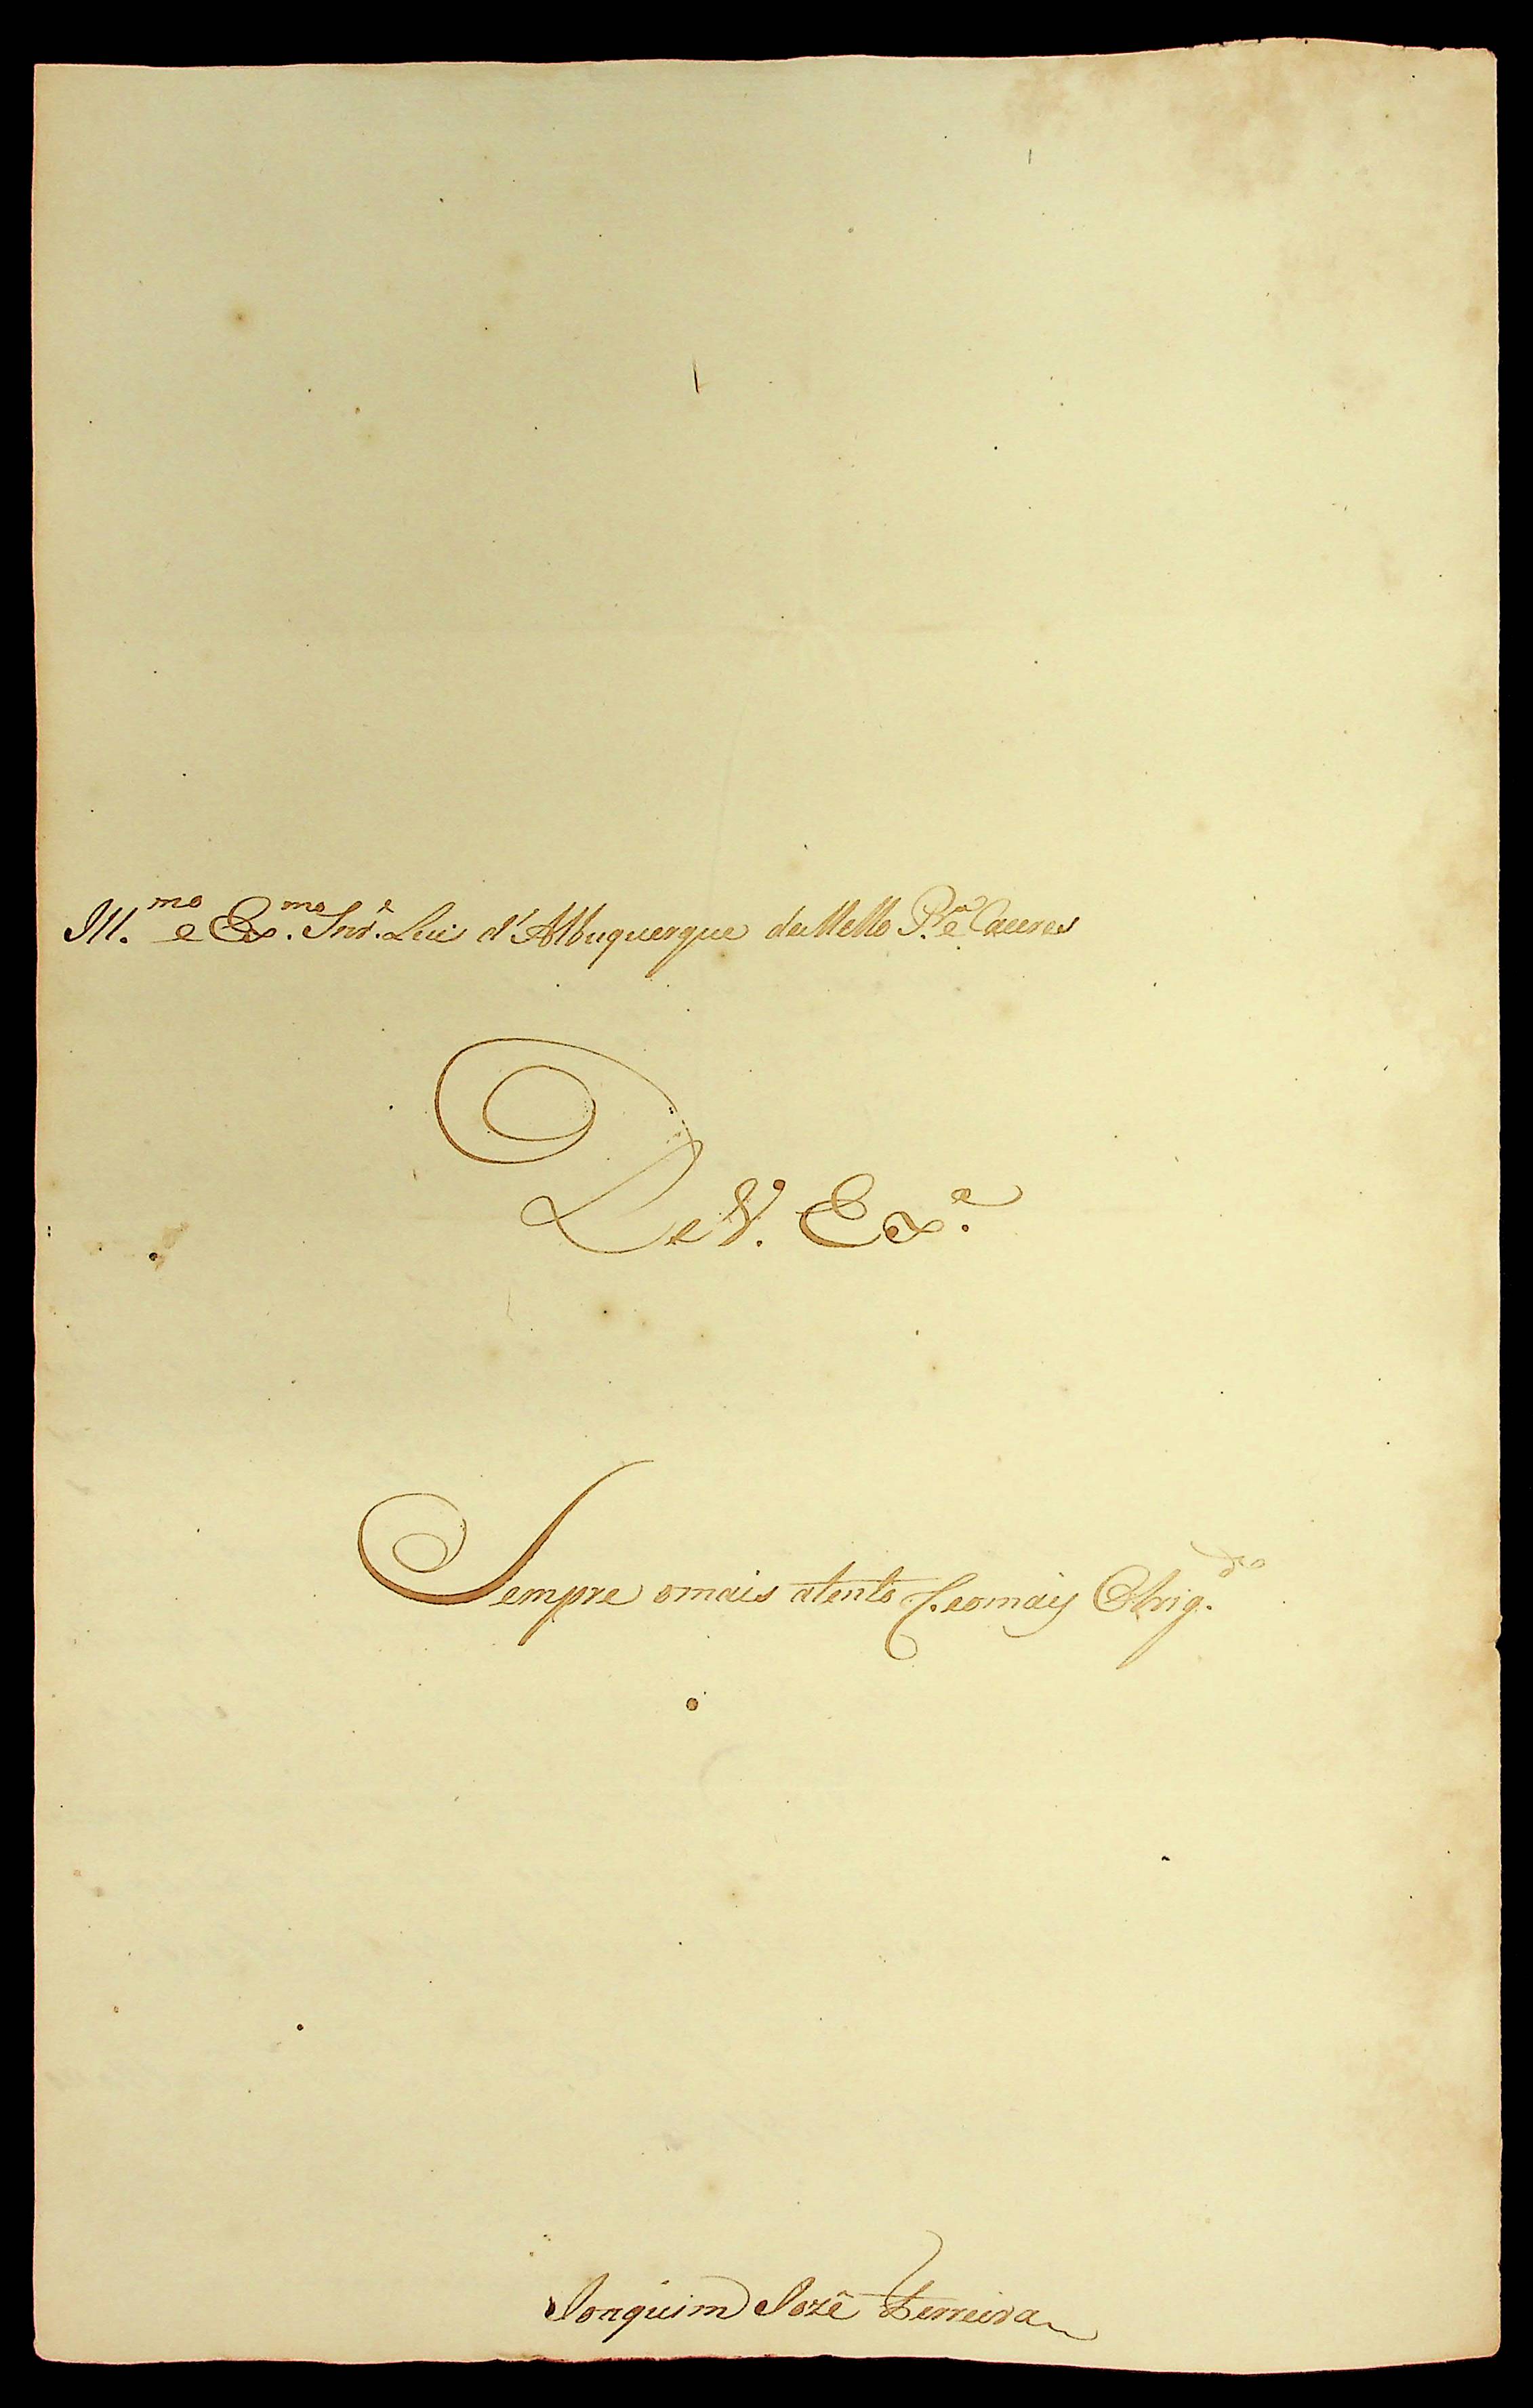 Ill.mo e Ex.mo Snr. Luis d'Albuquerque de Mello P.ra e Caceres
De V. Ex.a
Sempre omais atento C. eomais Obrig.do
Joaquim José Ferreira